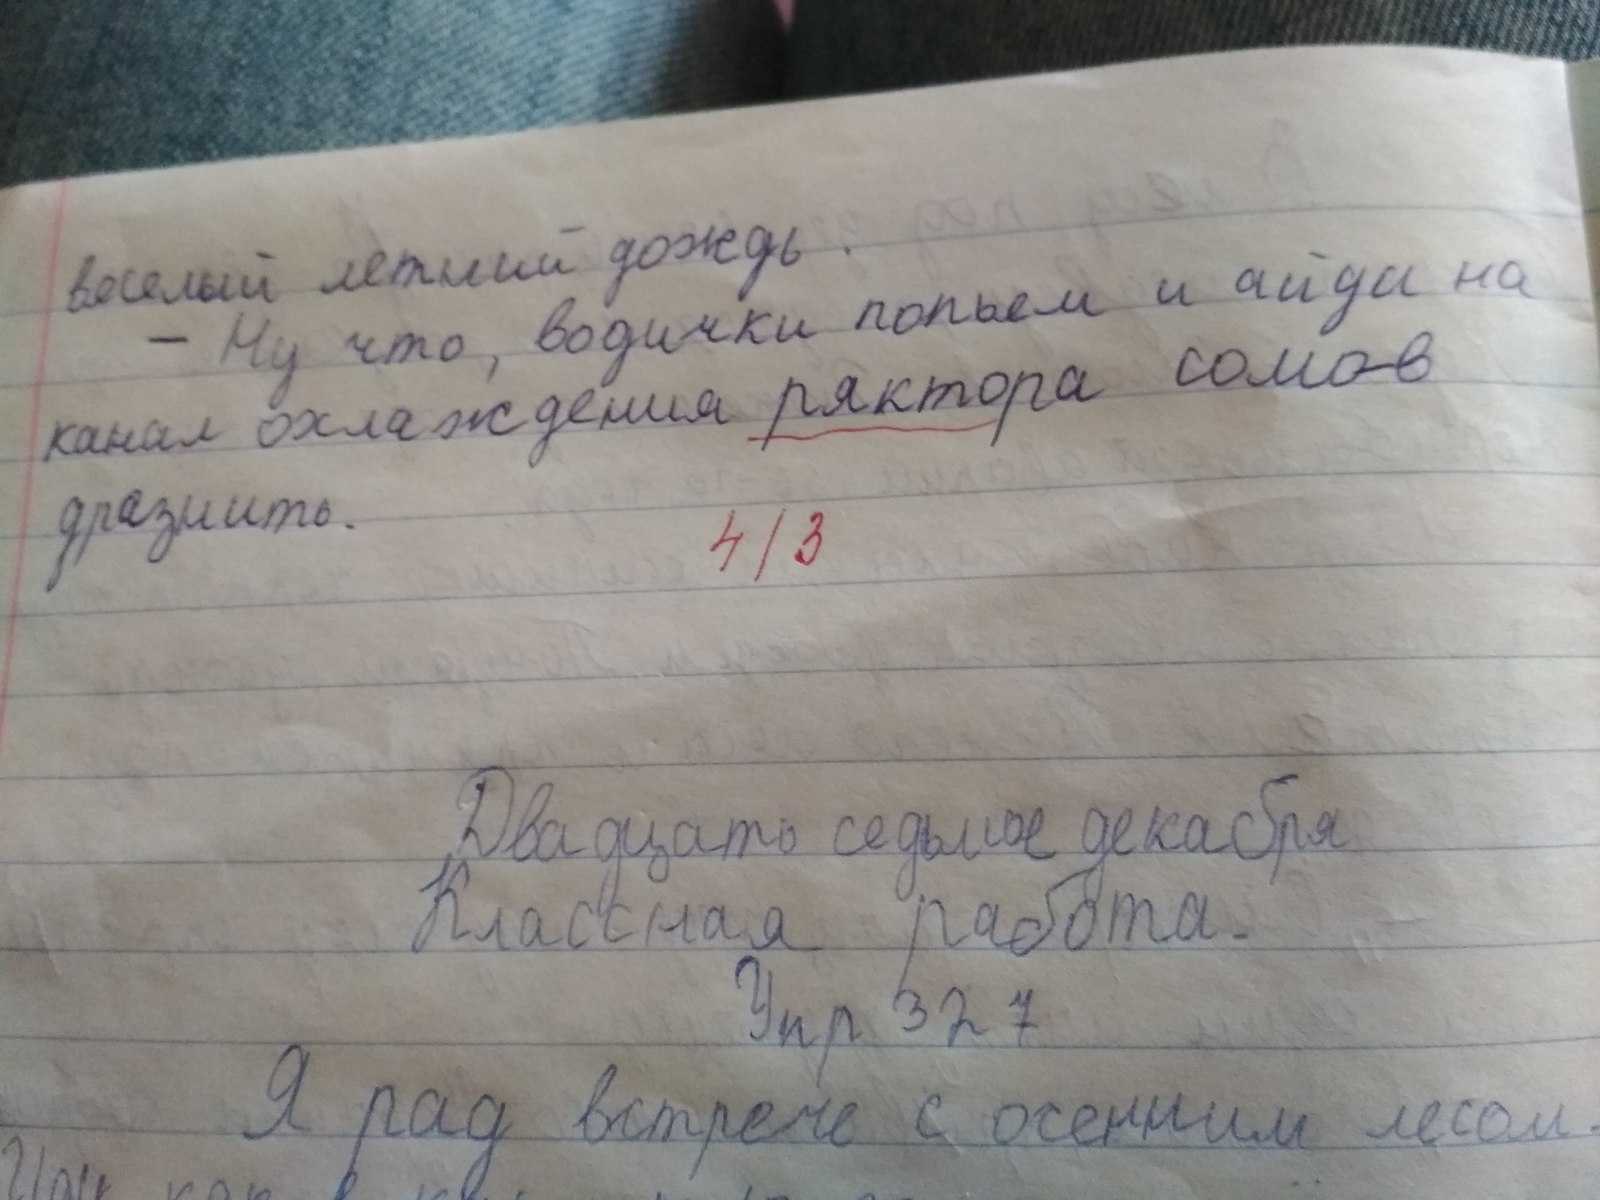 веселый летний дождь.
– Ну что, водички попьем и айда на
канал охлаждения ряктора сомов
дразнить.
4/3
Двадцать седьмое декабря
Классная работа.
Упр 327
Я рад встрече с осенним лесом.
как в